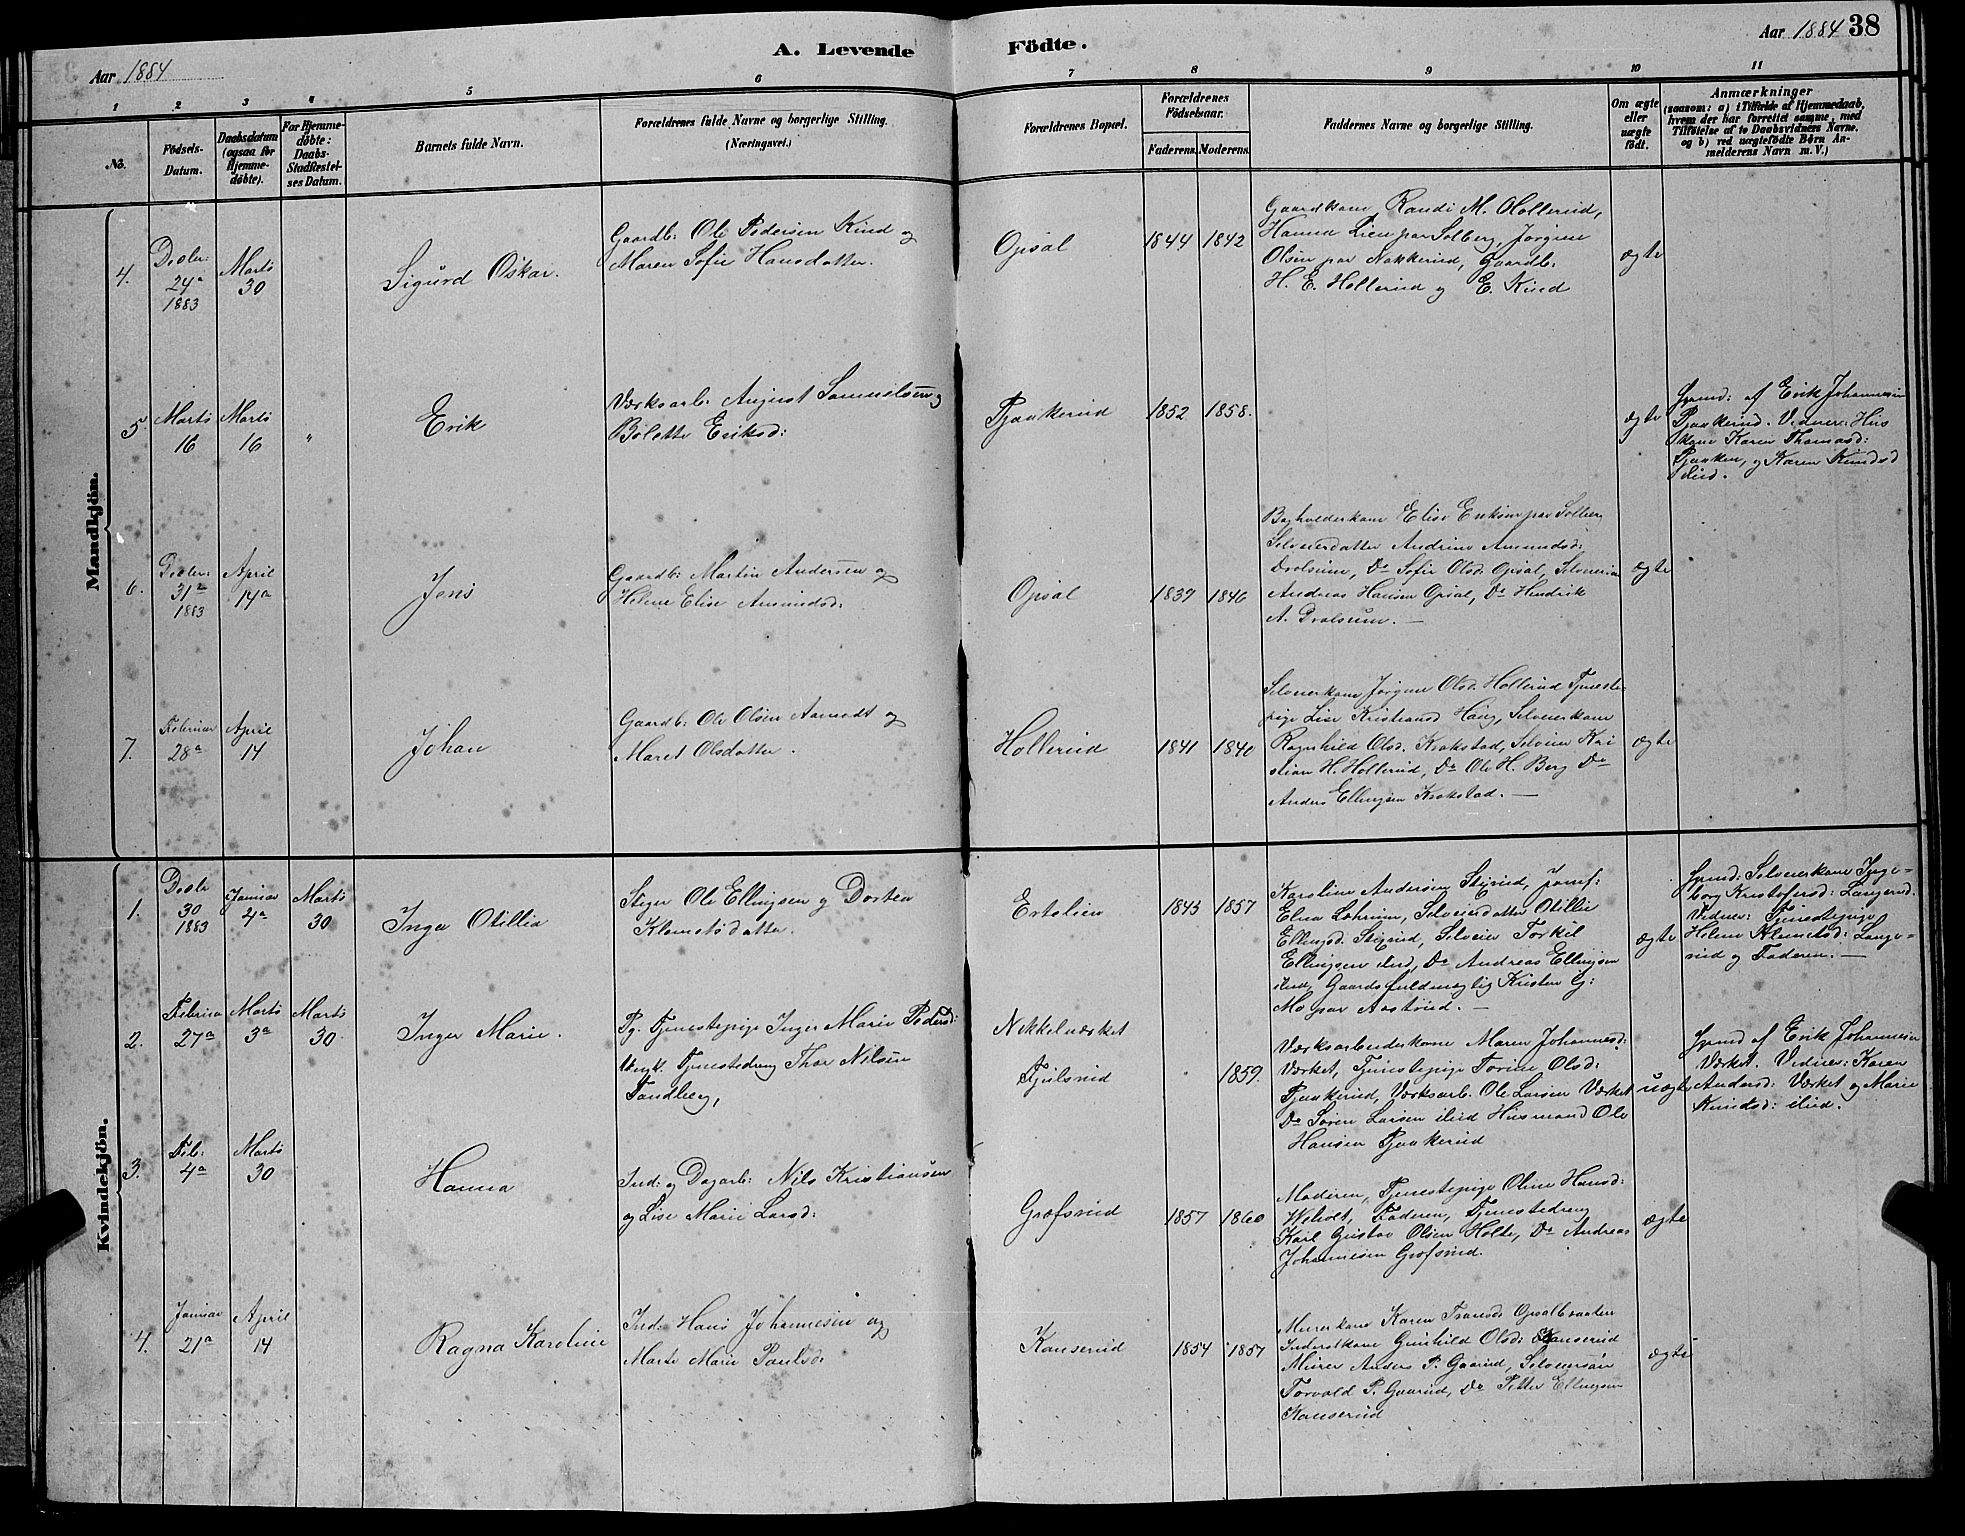 Aar 1884
A. Levende Födte.
Aar 1884 38
1 2 3 4 5 6 7 8 9 10 11
No. Födsels-Datum. Daabsdatum (ogsaa for Hjemme-döbte). For Hjemme-döbte: Daabs-Stadfæstel-ses Datum. Barnets fulde Navn. Forældrenes fulde Navne og borgerlige Stilling. (Næringsvei.) Forældrenes Bopæl. Forældrenes Födselsaar. Faderens. Moderens. Faddernes Navne og borgerlige Stilling. Om ægte eller uægte födt. Anmærkninger (saasom: a) i Tilfælde af Hjemmedaab, hvem der har forrettet samme, med Tilföielse af to Daabsvidners Navne. og b) ved uægtefödte Börn An-melderens Navn m. V.)
Mandkjön.
4. Decbr: 24de 1883
Marts 30
Sigurd Oskar.
Gaardb: Ole Pedersen Kind og
Maren Sofie Hansdatter.
Opsal
1844 1842
Gaardkone Randi M. Hollerud,
Hanna Lien paa Solberg, Jørgine
Olsen paa Nakkerud, Gaardb:
H. E. Hollerud og E. Kind
ægte
5. Marts 16
Marts 16
"
Erik
Værksarb: August Samuelsen og
Bolette Eriksd:
Pjaakerud
1852 1858.
ægte
Hjemd: af Erik Johannesen
Pjaakerud. Vidner: Hus
kone Karen Thomasd:
Pjaaken, og Karen Knudsd
ibid.
6. Decbr: 31te 1883
April 14de
Jens
Gaardb: Martin Andersen og
Helene Elise Amundsd:
Opsal
1839 1846
Elise Eriksen paa Solberg
Selveierdatter Andrine Amundsd:
Dralsum, Do Sofie Olsd: Opsal, Selveier
Andreas Hansen Opsal, Do Hendrik
A. Dralsum. —
ægte
7. Februar 28de
April 14
Johan
Gaardb: Ole Olsen Aamodt og
Maret Olsdatter.
Hollerud
1841 1840
Selveierkone Jørgine Olsd. Hollerud Tjeneste-
pige Lise Kristiansd Haug, Selveierkone
Ragnhild Olsd. Krokstad, Selveier Kri
stian H. Hollerud, Do Ole H. Berg Do
Anders Ellingsen Krokstad. —
ægte
Kvindekjön.
1. Decbr 30 1883
Januar 4de
Marts 30
Inga Otillia
Stiger Ole Ellingsen og Dorthea
Klemetsdatter.
Ertelien
1843 1857
Karoline Andersen Stigrud, Jomf:
Elna Lohrum, Selveierdatter Otillie
Ellingsd. Stigrud, Selveier Torkel
Ellingsen ibid, Do Andreas Ellingsen
ibid, Gaardsfuldmægtig Kristen G:
Mo paa
ægte
Hjemd: Selveierkone Inge-
borg Kristofersd: Langerud.
Vidner: Tjenestepige
Helene Klemetsd: Lange-
rud og Faderen. —
2. Februar 27de
Marts 3de
Marts 30
Inger Marie.
Pg. Tjenestepige Inger Marie Pedersd:
Ungk. Tjenestedreng Thor Nilsen
Tandberg,
Nikkelværket
Fjulsrud
1859.
Værksarbeiderkone Maren Johannesd:
Værket, Tjenestepige Torine Olsd:
Pjaakerud, Værksarb. Ole Larsen Værket
Do Søren Larsen ibid Husmand Ole
Hansen Pjaakerud
uægte
Hjemd af Erik Johannesen
Værket. Vidner: Karen
Andersd: Værket og Marie
Knudsd: ibid.
3. Feb: 4de
Marts 30
Hanna
Ind: og Dagarb: Nils Kristiansen
og Lise Marie Larsd:
Grøfsrud
1857 1860
Moderen, Tjenestepige Oline Hansd:
Weholt, Faderen, Tjenestedreng
Karl Gustav Olsen Holte, Do Andreas
Johannesen Grøfsrud.
ægte
4. Januar 21de
April 14
Ragna Karoline
Ind: Hans Johannesen og
Marte Marie Paulsd:
Kanserud
1854 1857
Murerkone Karen Fransd: Opsalbraaten
Inderstkone Gunhild Olsd: Kanserud
Murer Anders P. Gaarud, Selveiersøn
Torvald P. Gaarud, Do Petter Ellingsen
Kanserud
ægte